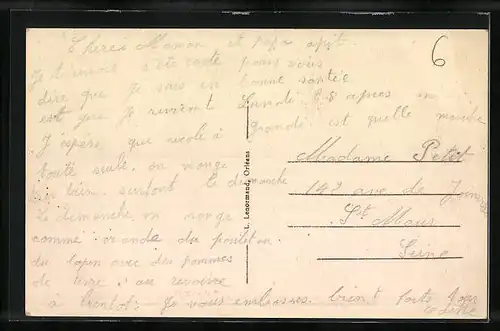 6
Cheres Maman et papa
Je t envoie cete carte pour vous
dire que je suis en bonne santée
est que je reviens Lundi 8 apres m
J'espère que nicole à grandi est quelle marche
toute seule. on mange
bien. surtout le dimanche
Le dimanche on mange
comme viande du
du lapin avec des pommes
de terre. au revoire
à bientot - Je vous embrasse bien forts
L. Lenormand, Orléans
Madame Petit
ave de
St Maur
Seine